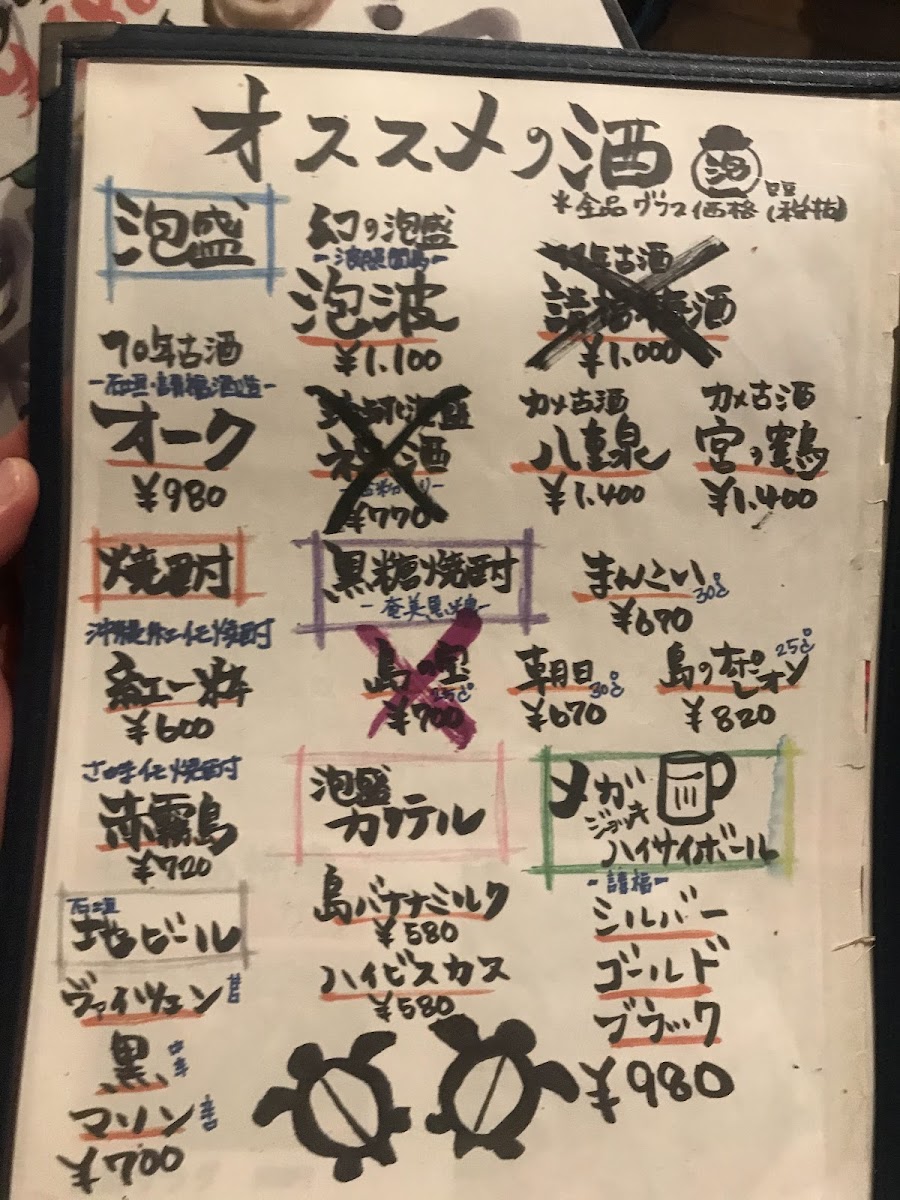 オススメの酒
泡
*全品グラス価格(税抜)
泡盛
幻の泡盛
-波照間島-
泡波
¥1.100
年古酒
請福梅酒
¥1.000
10年古酒
-石垣・請福酒造-
オーク
¥980
泡盛
酒
¥770
カメ古酒
八重泉
¥1.400
カメ古酒
宮の鶴
¥1.400
焼酎
沖縄産紅イモ焼酎
紅一粋
¥600
さつまイモ焼酎
赤霧島
¥720
黒糖焼酎
-奄美黒糖-
まんこい 30℃
¥670
島の宝 25℃
¥700
朝日 30℃
¥670
島のナポレオン 25℃
¥820
泡盛
カクテル
島バナナミルク
¥580
ハイビスカス
¥580
メガ
ジョッキ
ハイサイボール
-請福-
シルバー
ゴールド
ブラック
¥980
石垣
地ビール
ヴァイツェン 甘口
黒 中辛
マリン 辛口
¥700